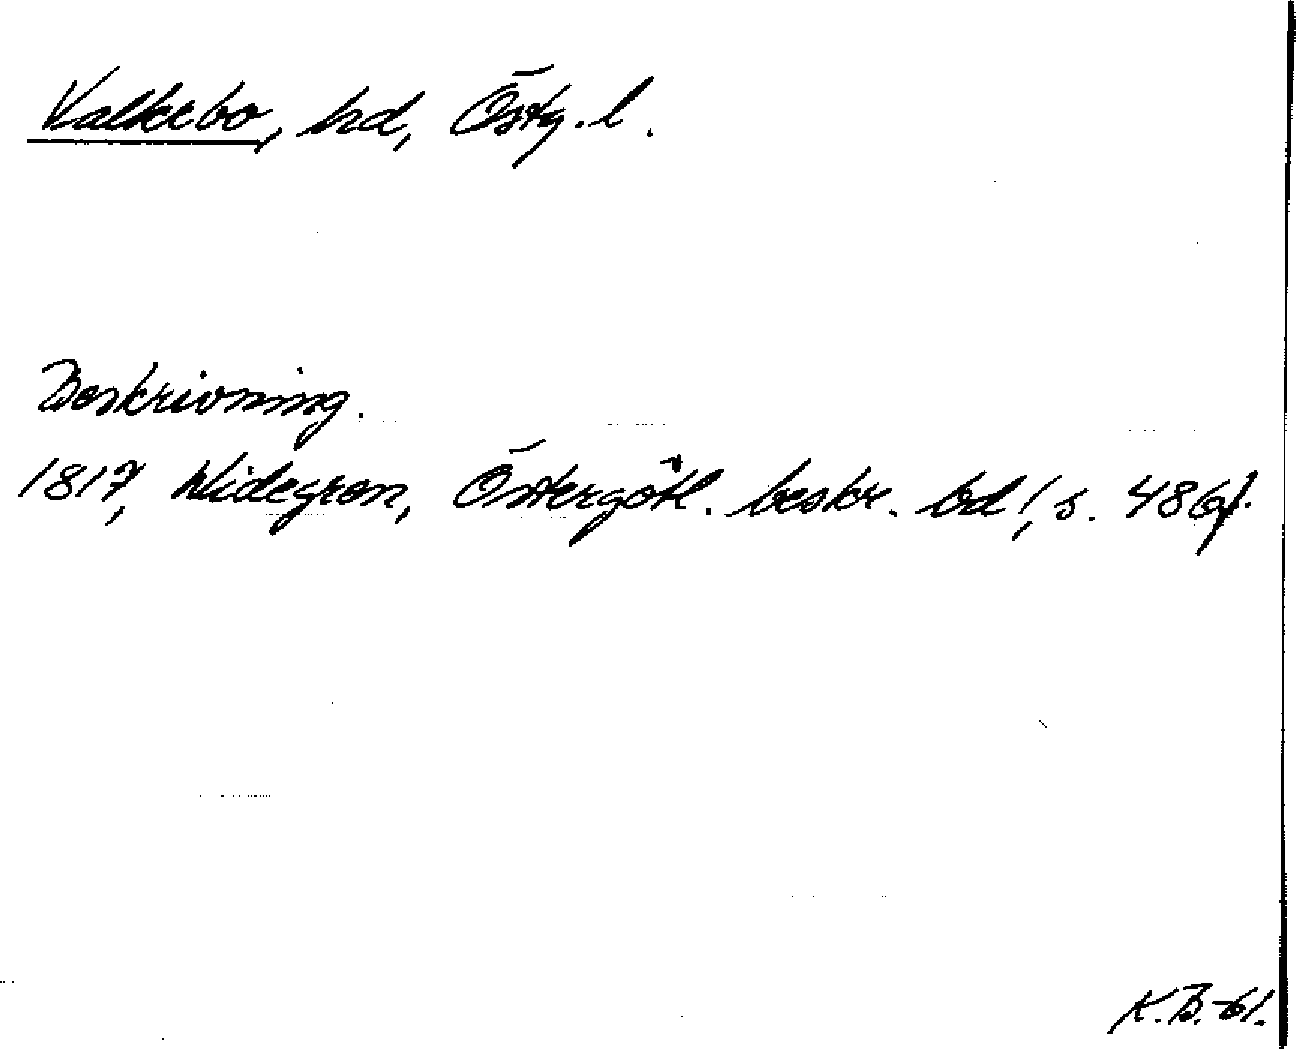 Valkebo, hd, Östg. l.
Beskrivning.
1817, Widegren, Östergötl. beskr. bd 1, s. 486f.
K.B. -61.